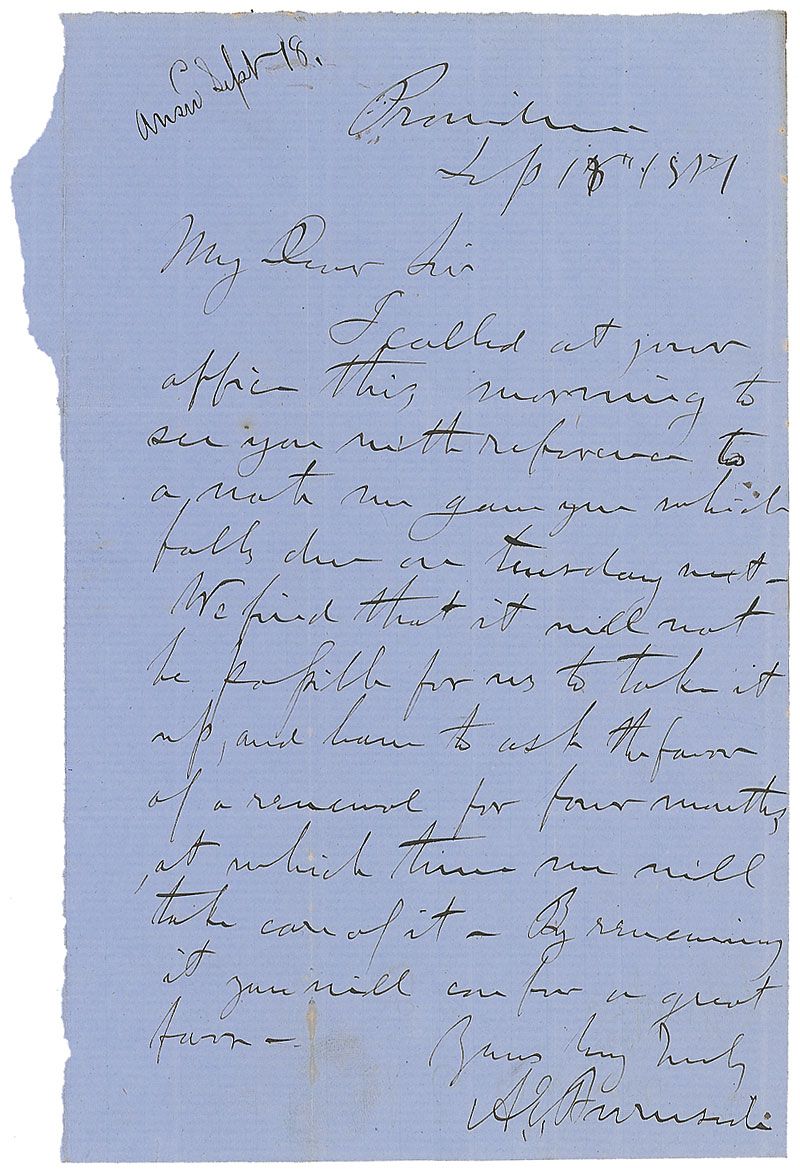 Answ Sept 18.
Providence
Sep 18" 1857
My Dear Sir
I called at your
office this morning to
see you with reference to
a note we gave you which
falls due on tuesday next -
We find that it will not
be possible for us to take it
up, and have to ask the favor
of a renewal for four months,
at which time we will
take care of it - By renewing
it you will confer a great
favor -
Yours Very Truly
A. E. Burnside